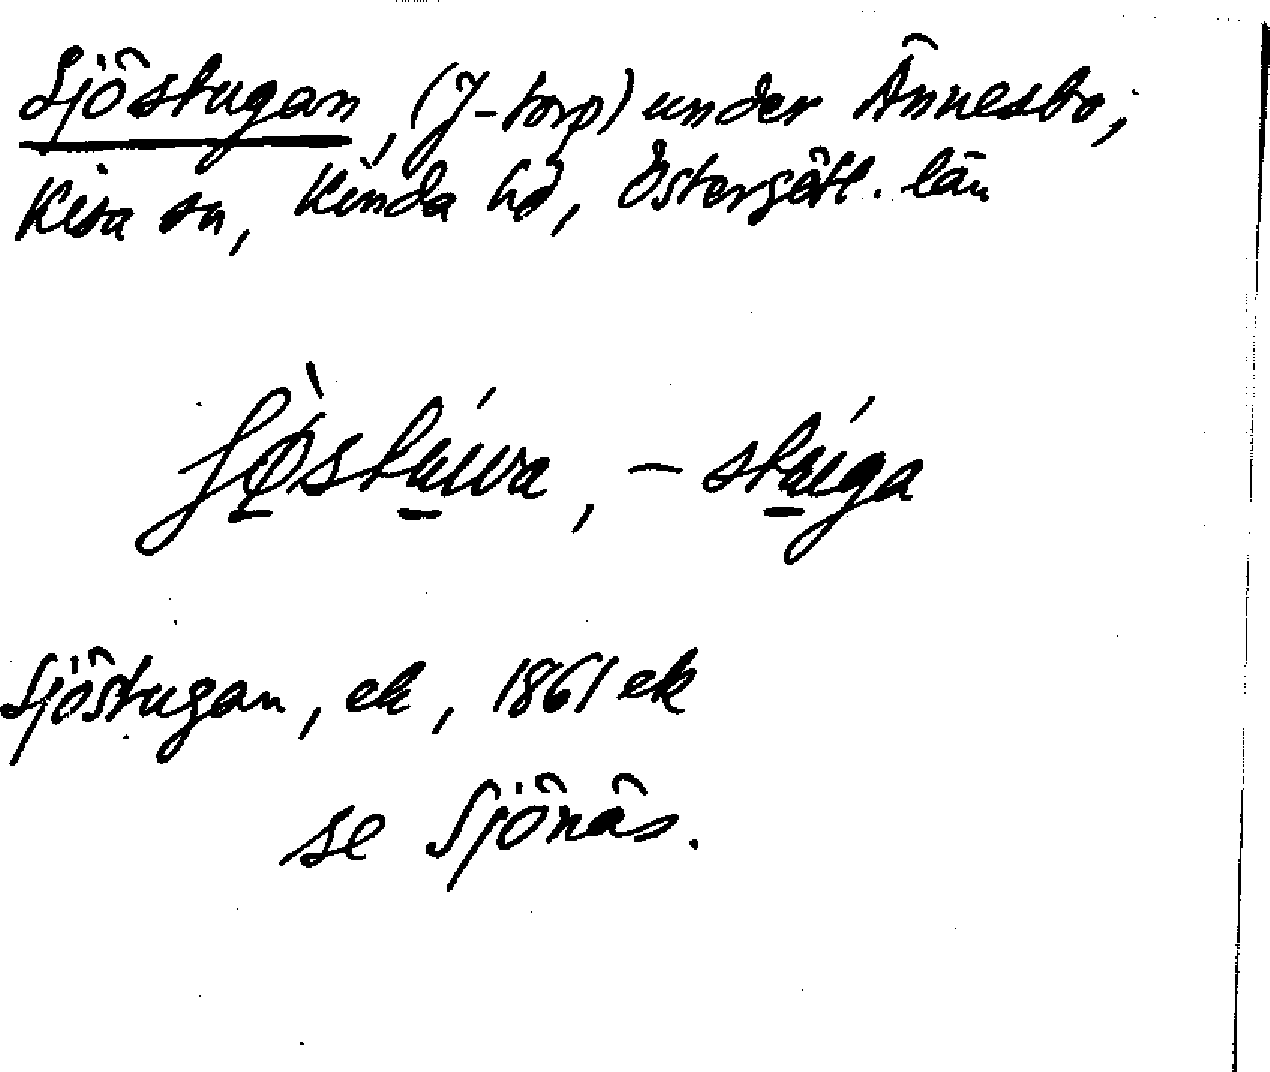 Sjöstugan, (J-torp) under Ännesbo,
Kisa sn, Kinda hd, Östergötl. län
-stuga
Sjöstugan, ek, 1861 ek
se Sjönäs.